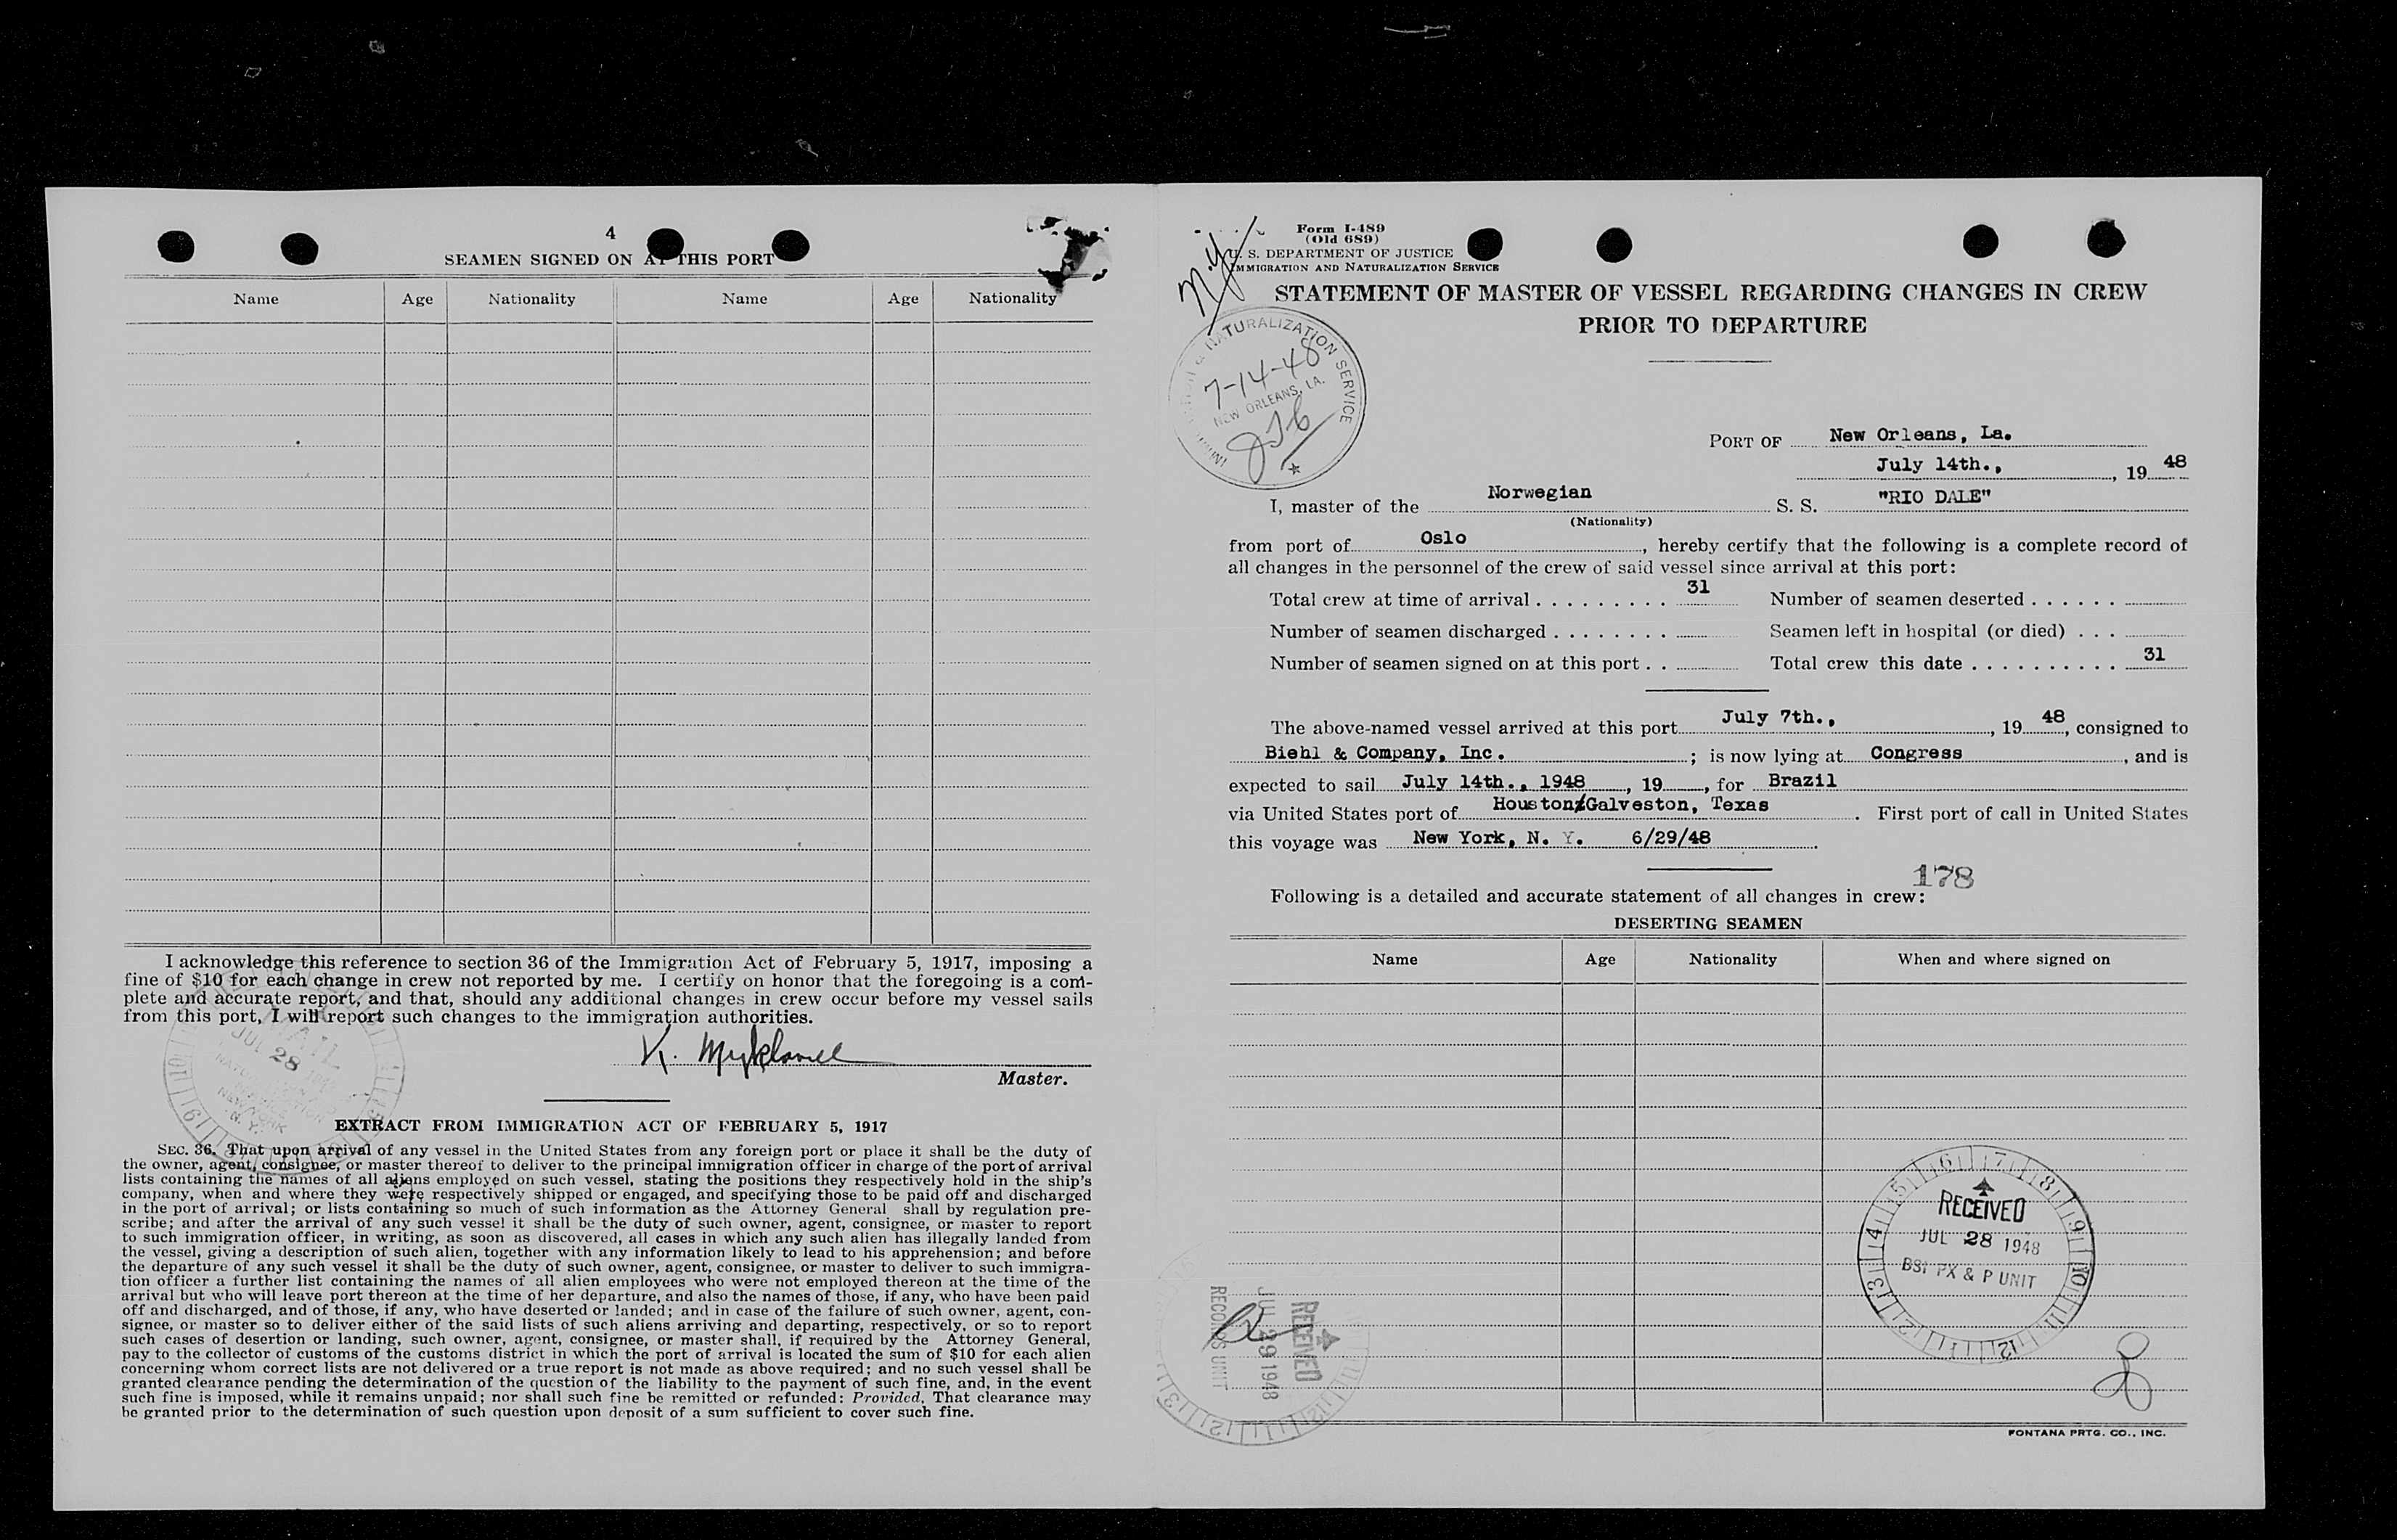 4
SEAMEN SIGNED ON AT THIS PORT
Name Age Nationality Name Age Nationality
I acknowledge this reference to section 36 of the Immigration Act of February 5, 1917, imposing a
fine of $10 for each change in crew not reported by me. I certify on honor that the foregoing is a com-
plete and accurate report, and that, should any additional changes in crew occur before my vessel sails
from this port, I will report such changes to the immigration authorities.
MAIL
JUL 28
NEW YORK
N. Y.
K.
Master.
EXTRACT FROM IMMIGRATION ACT OF FEBRUARY 5, 1917
SEC. 36. That upon arrival of any vessel in the United States from any foreign port or place it shall be the duty of
the owner, agent, consignee, or master thereof to deliver to the principal immigration officer in charge of the port of arrival
lists containing the names of all aliens employed on such vessel, stating the positions they respectively hold in the ship's
company, when and where they were respectively shipped or engaged, and specifying those to be paid off and discharged
in the port of arrival; or lists containing so much of such information as the Attorney General shall by regulation pre-
scribe; and after the arrival of any such vessel it shall be the duty of such owner, agent, consignee, or master to report
to such immigration officer, in writing, as soon as discovered, all cases in which any such alien has illegally landed from
the vessel, giving a description of such alien, together with any information likely to lead to his apprehension; and before
the departure of any such vessel it shall be the duty of such owner, agent, consignee, or master to deliver to such immigra-
tion officer a further list containing the names of all alien employees who were not employed thereon at the time of the
arrival but who will leave port thereon at the time of her departure, and also the names of those, if any, who have been paid
off and discharged, and of those, if any, who have deserted or landed; and in case of the failure of such owner, agent, con-
signee, or master so to deliver either of the said lists of such aliens arriving and departing, respectively, or so to report
such cases of desertion or landing, such owner, agent, consignee, or master shall, if required by the Attorney General,
pay to the collector of customs of the customs district in which the port of arrival is located the sum of $10 for each alien
concerning whom correct lists are not delivered or a true report is not made as above required; and no such vessel shall be
granted clearance pending the determination of the question of the liability to the payment of such fine, and, in the event
such fine is imposed, while it remains unpaid; nor shall such fine be remitted or refunded: Provided, That clearance may
be granted prior to the determination of such question upon deposit of a sum sufficient to cover such fine.
N.Y.
Form I-489
(Old 689)
U. S. DEPARTMENT OF JUSTICE
IMMIGRATION AND NATURALIZATION SERVICE
STATEMENT OF MASTER OF VESSEL REGARDING CHANGES IN CREW
PRIOR TO DEPARTURE
NATURALIZATION SERVICE
7-14-48
NEW ORLEANS, LA.
PORT OF New Orleans, La.
July 14th., , 19 48
I, master of the Norwegian S. S. "RIO DALE"
(Nationality)
from port of Oslo , hereby certify that the following is a complete record of
all changes in the personnel of the crew of said vessel since arrival at this port:
Total crew at time of arrival . . . . . . . . . 31 Number of seamen deserted . . . . . .
Number of seamen discharged . . . . . . . . Seamen left in hospital (or died) . . .
Number of seamen signed on at this port . . Total crew this date . . . . . . . . . . 31
The above-named vessel arrived at this port July 7th., , 19 48, consigned to
Biehl & Company, Inc. ; is now lying at Congress , and is
expected to sail July 14th., 1948 , 19 , for Brazil
via United States port of Houston/Galveston, Texas . First port of call in United States
this voyage was New York, N. Y. 6/29/48 .
178
Following is a detailed and accurate statement of all changes in crew:
DESERTING SEAMEN
Name Age Nationality When and where signed on
RECEIVED
JUL 28 1948
BSI PX & P UNIT
RECEIVED
JUL 29 1948
RECORDS UNIT
FONTANA PRTG. CO., INC.